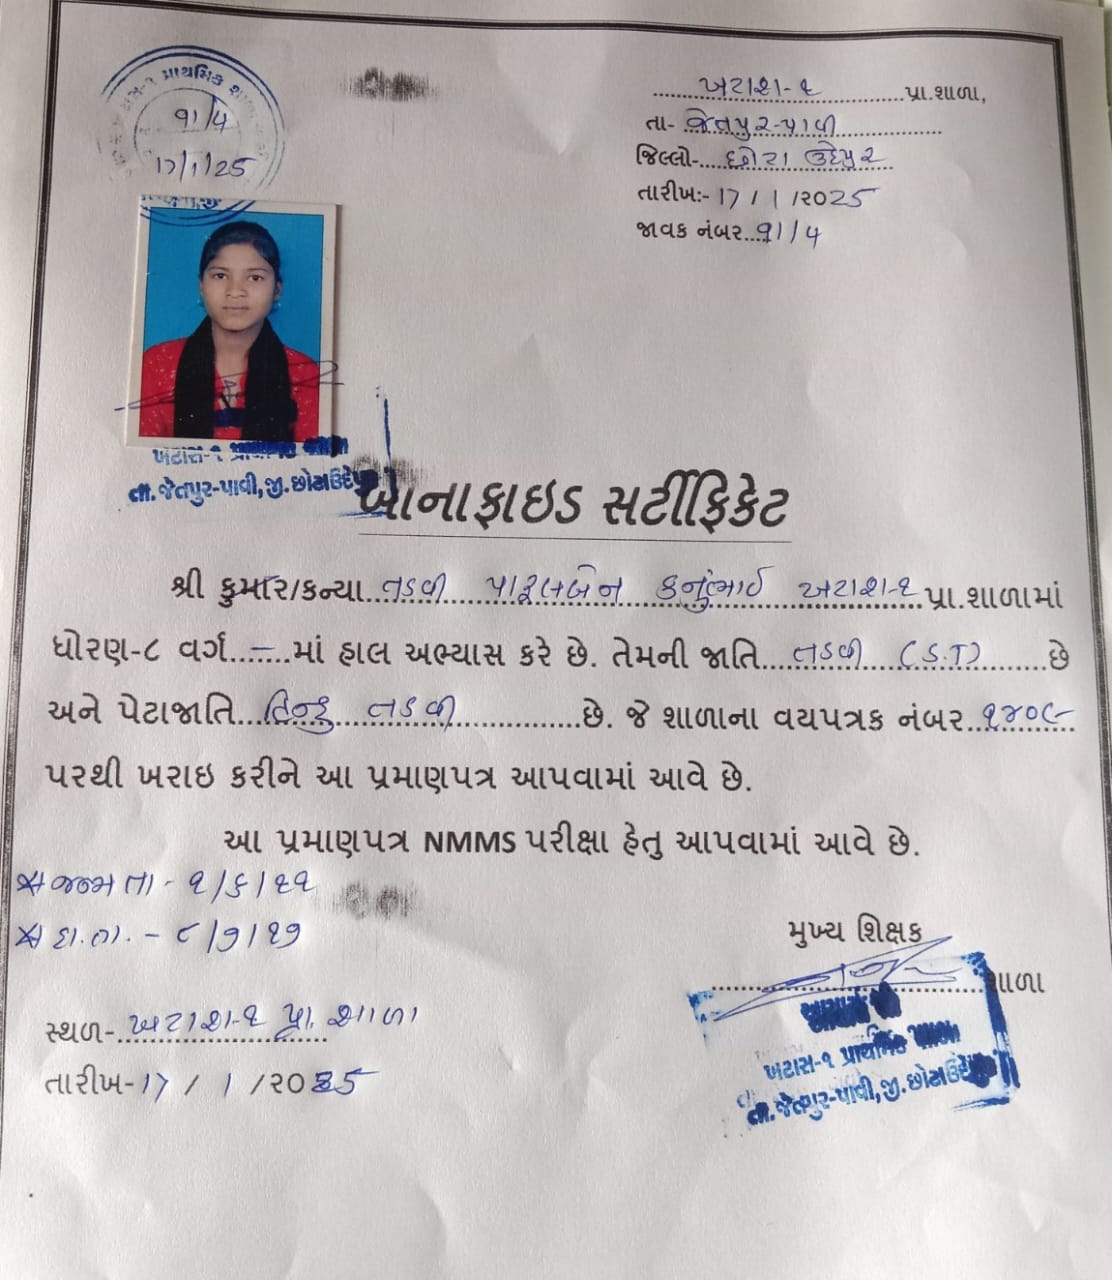 પ્રાથમિક
૧૧/૪
17/1/25
ખટાશ-૧ પ્રા.શાળા,
તા- જેતપુર-પાવી
જિલ્લો- છોટા ઉદેપુર
તારીખ:- 17 / 1 /૨૦25
જાવક નંબર...૧૧/૪
ખટાસ-૧
તા. જેતપુર-પાવી, જી. છોટાઉદેપુર
બોનાફાઇડ સર્ટીફિકેટ
શ્રી કુમાર/કન્યા તડવી પારૂલબેન કનુભાઈ ખટાશ-૧ પ્રા.શાળામાં
ધોરણ-૮ વર્ગ...-...માં હાલ અભ્યાસ કરે છે. તેમની જાતિ...તડવી (S.T)...છે
અને પેટાજાતિ...હિન્દુ તડવી...છે. જે શાળાના વયપત્રક નંબર..૧૪૦૯
પરથી ખરાઇ કરીને આ પ્રમાણપત્ર આપવામાં આવે છે.
આ પ્રમાણપત્ર NMMS પરીક્ષા હેતુ આપવામાં આવે છે.
* જન્મ તા - ૧/૬/૧૧
* દા.તા. - ૮/૭/૧૭
મુખ્ય શિક્ષક
શાળા
ખટાસ-૧ પ્રાથમિક
તા. જેતપુર-પાવી, જી. છોટાઉદેપુર
સ્થળ- ખટાશ-૧ પ્રા. શાળા
તારીખ-17 / 1 /૨૦25